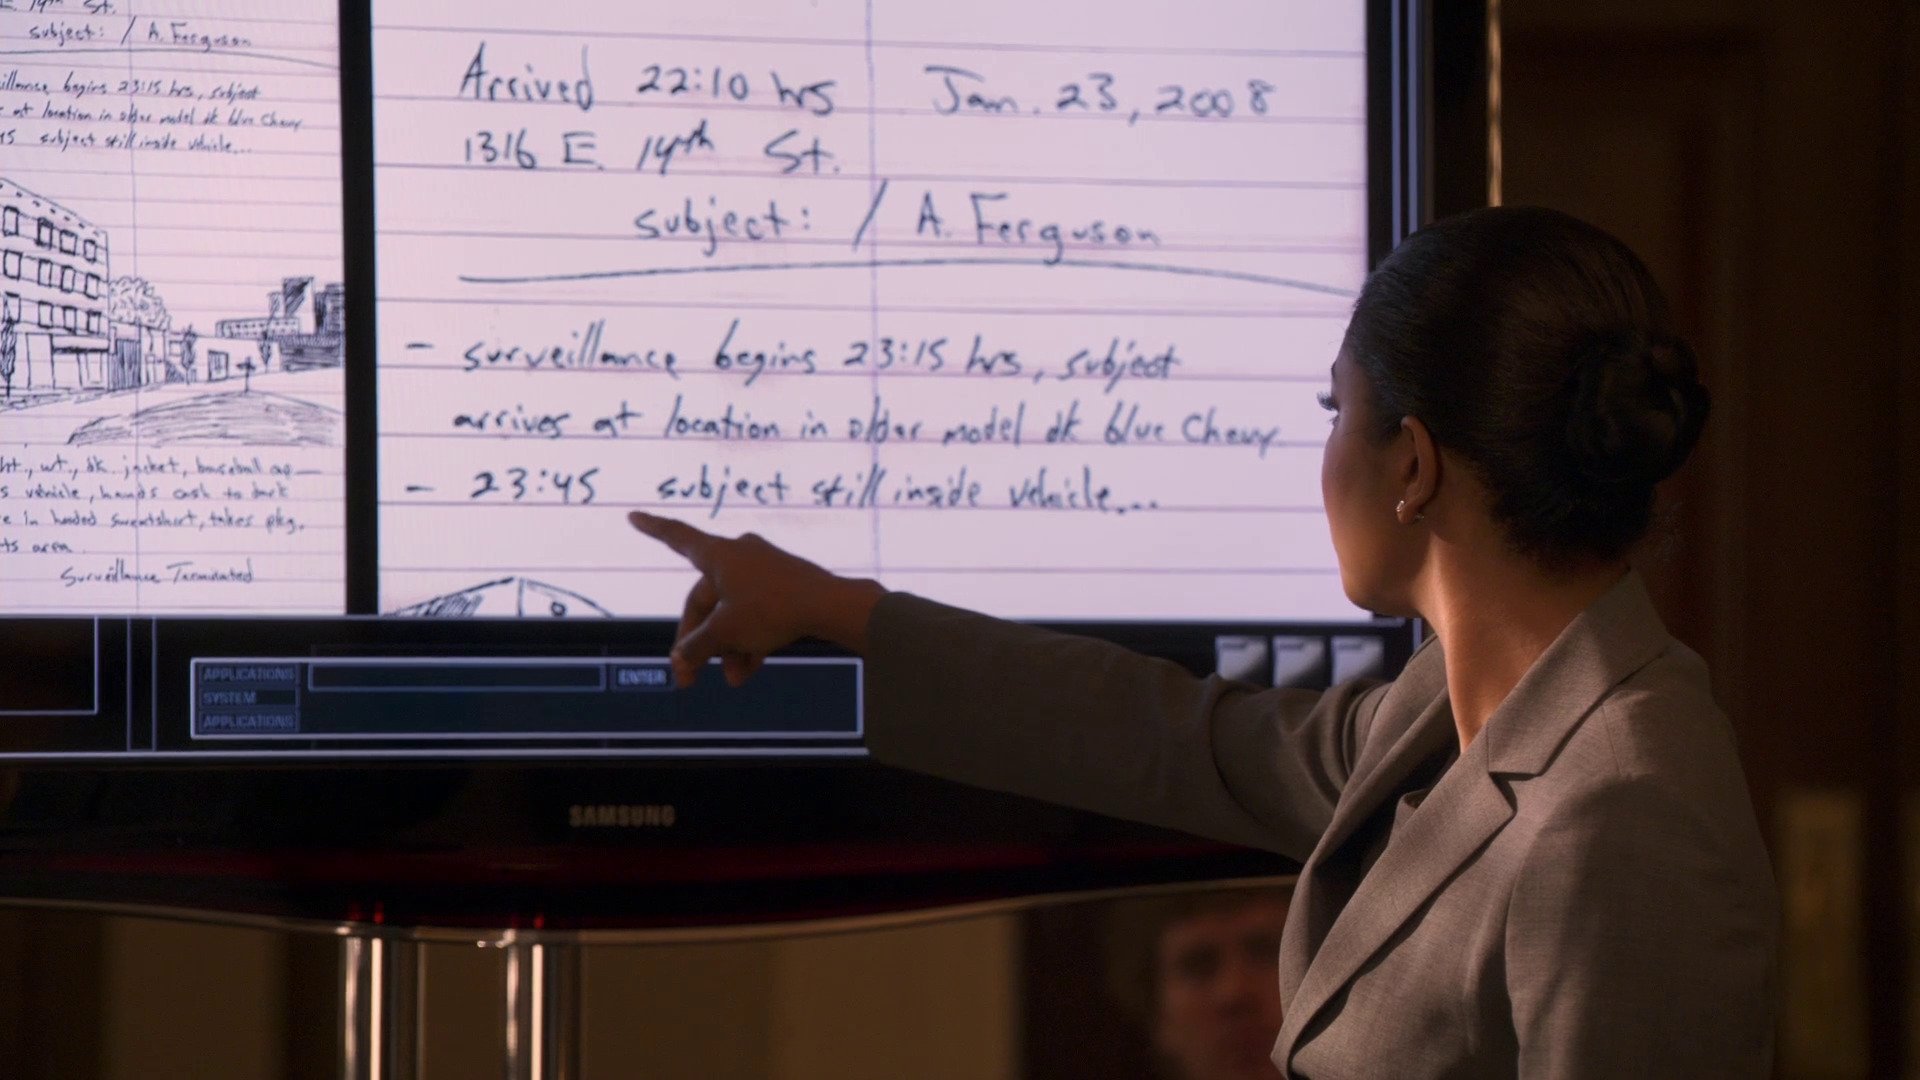 E. 14th St.
subject: / A. Ferguson
begins 23:15 hrs, subject
at location in older model dk blue Chevy
subject still inside vehicle...
ht., wt., dk. jacket, baseball
vehicle, hands cash to
in hooded sweatshirt, takes pkg.
area.
Surveillance Terminated
Arrived 22:10 hrs Jan. 23, 2008
1316 E. 14th St.
subject: / A. Ferguson
- surveillance begins 23:15 hrs, subject
arrives at location in older model dk blue Chevy
- 23:45 subject still inside vehicle...
APPLICATIONS
ENTER
SYSTEM
APPLICATIONS
SAMSUNG